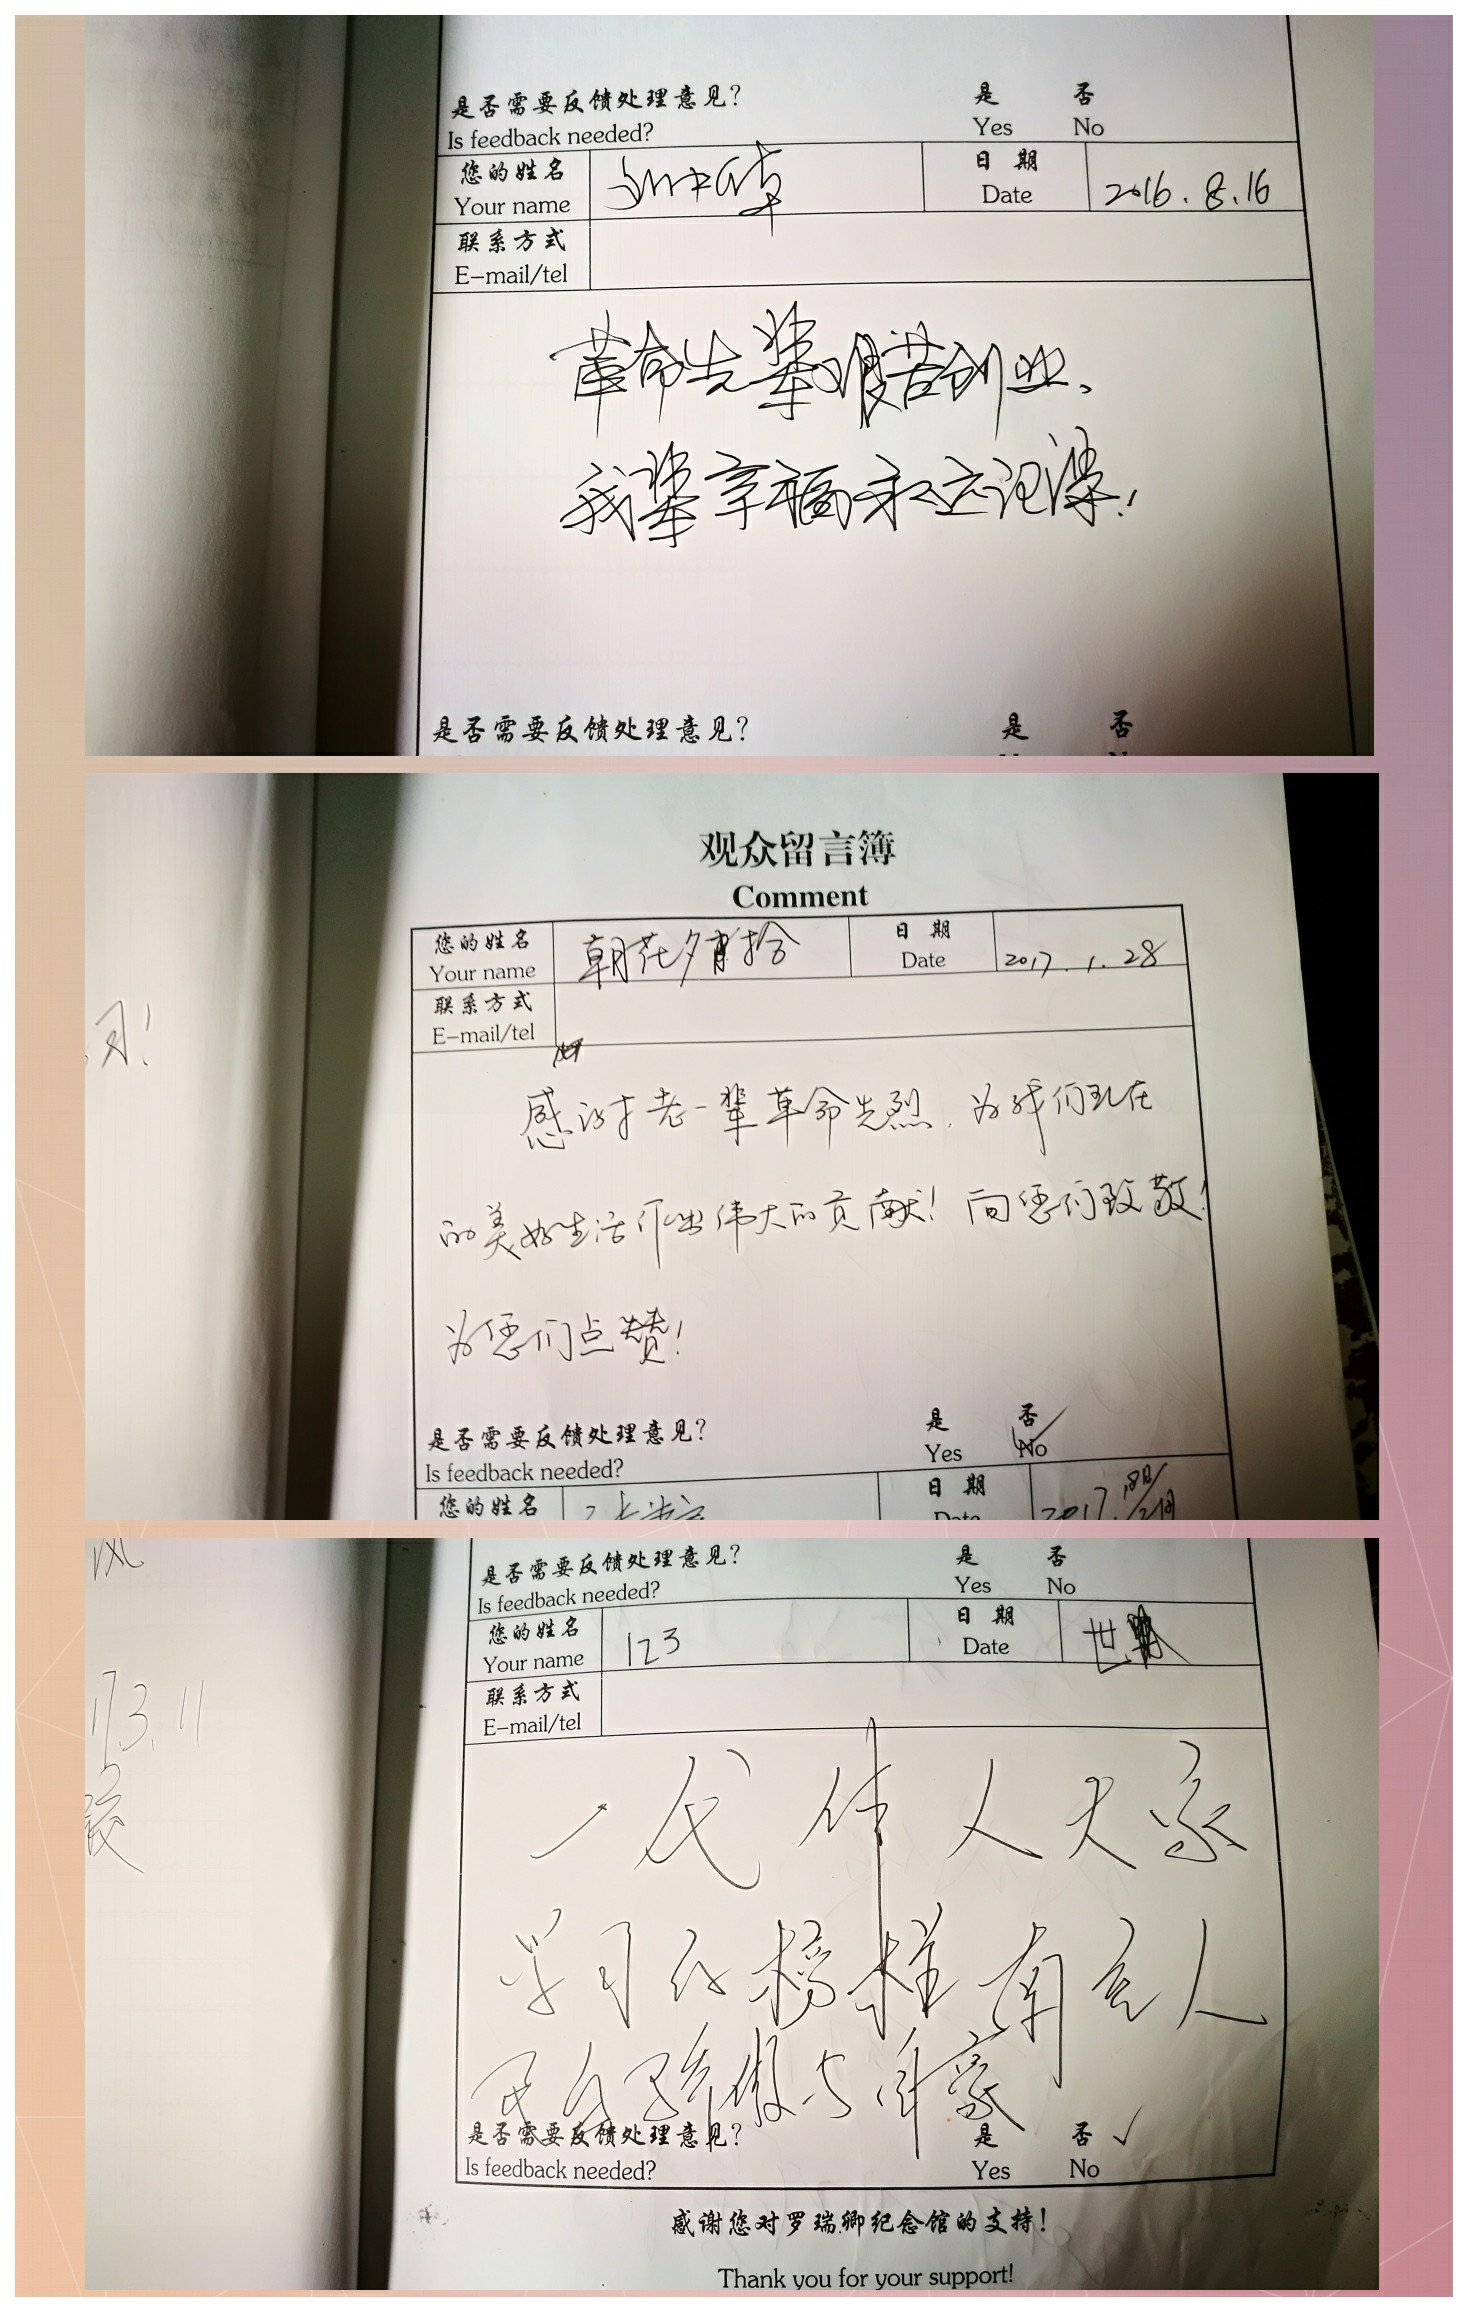 是否需要反馈处理意见? 是 否
Is feedback needed? Yes No
您的姓名 日期
Your name Date 2016.8.16
联系方式
E-mail/tel
革命先辈艰苦创业、
我辈幸福永远记得!
是否需要反馈处理意见? 是 否
观众留言簿
Comment
您的姓名 朝花夕拾 日期
Your name Date 2017.1.28
联系方式
E-mail/tel
月!
感谢老一辈革命先烈,为我们现在
的美好生活作出伟大的贡献!向您们致敬!
为您们点赞!
是否需要反馈处理意见? 是 否
Is feedback needed? Yes No
您的姓名 日期 2017.
风
是否需要反馈处理意见? 是 否
Is feedback needed? Yes No
您的姓名 123 日期 世
Your name Date
联系方式
E-mail/tel
3.11
一代伟人大家
学习的榜样南充人
民的骄傲与自豪
是否需要反馈处理意见? 是 否
Is feedback needed? Yes No
感谢您对罗瑞卿纪念馆的支持!
Thank you for your support!